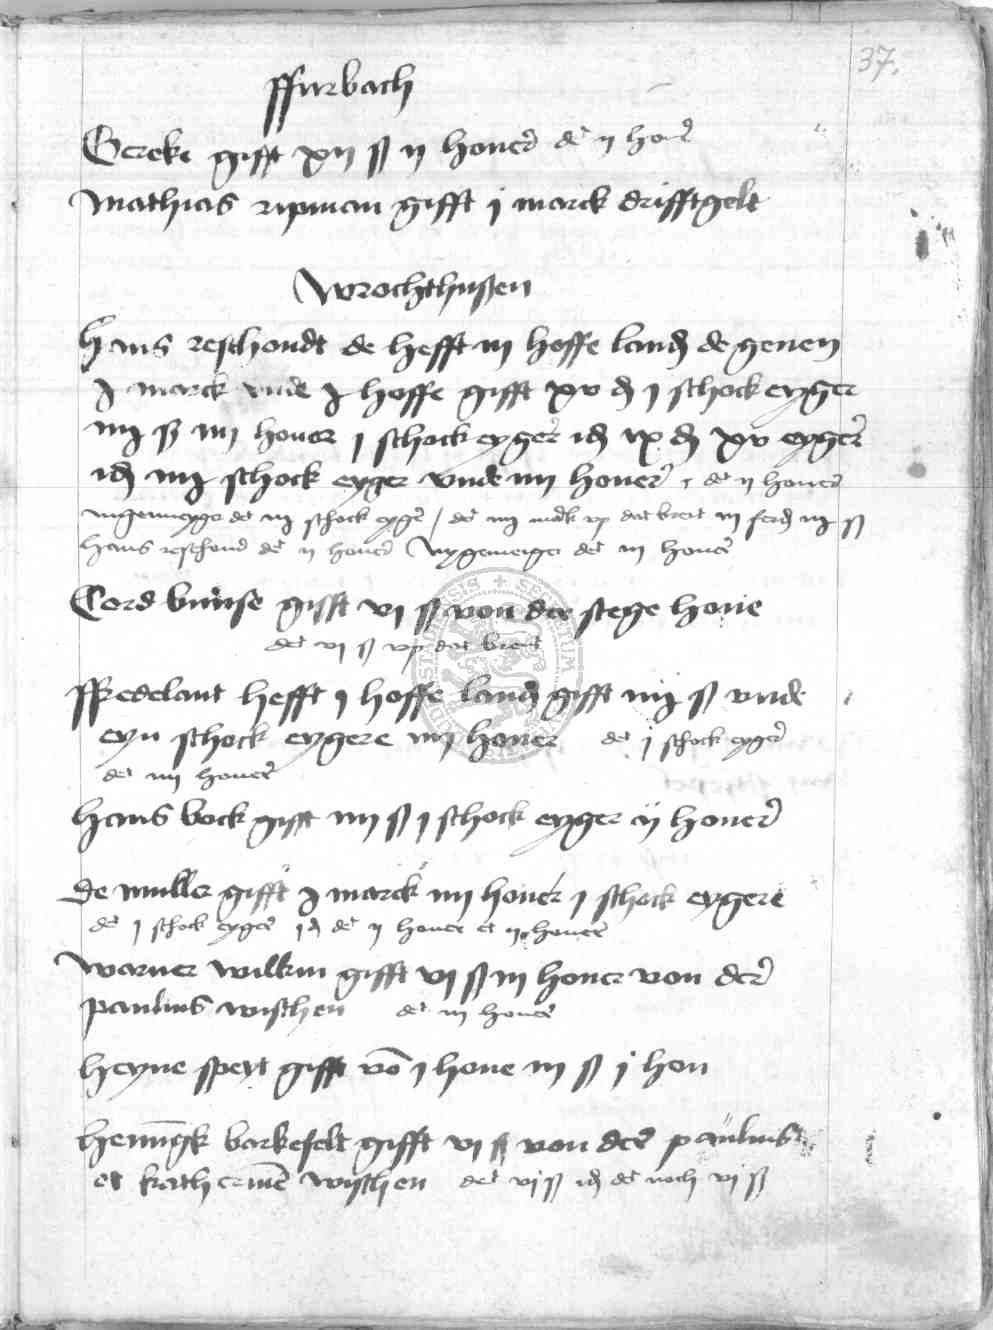 37.
ffurbach
Gereke gifft xij ß ij honer dt ij honer
Mathias ripman gifft j marck drifftgelt
Wrochthußen
Hans reschondt de hefft iij hoffe landes de geuen
j marck vnde j hoffe gifft xv d j schock eyger
iiij ß iiij honer j schock eyger id ix d xv eyger
id iiij schock eyger vnde iiij honer dt ij honer
dt iij schock eyger / dt iiij mark vp dat breit iij ferd iij ß
hans reschond dt ij honer dt iij honer
Cord bunse gifft vi ß von der stege houe
dt vj ß vp dat breit
Spedelant hefft j hoffe land gifft iiij ß vnde
eyn schock eygere iiij honer dt j schock eyger
dt iiij honer
hans bock gifft iiij ß j schock eyger ij honer
de muller gifft j marck iiij honer j schock eygere
dt j schock eyger id dt ij honer et ij honer
Warner willkin gifft vj ß iij honer von der
paulins wischen dt iij honer
heyne speyt gifft vō j houe iij ß j hon
hennīgk barkefelt gifft vj ß von der paulins
et katherinē wischen dt vj ß id dt noch vj ß